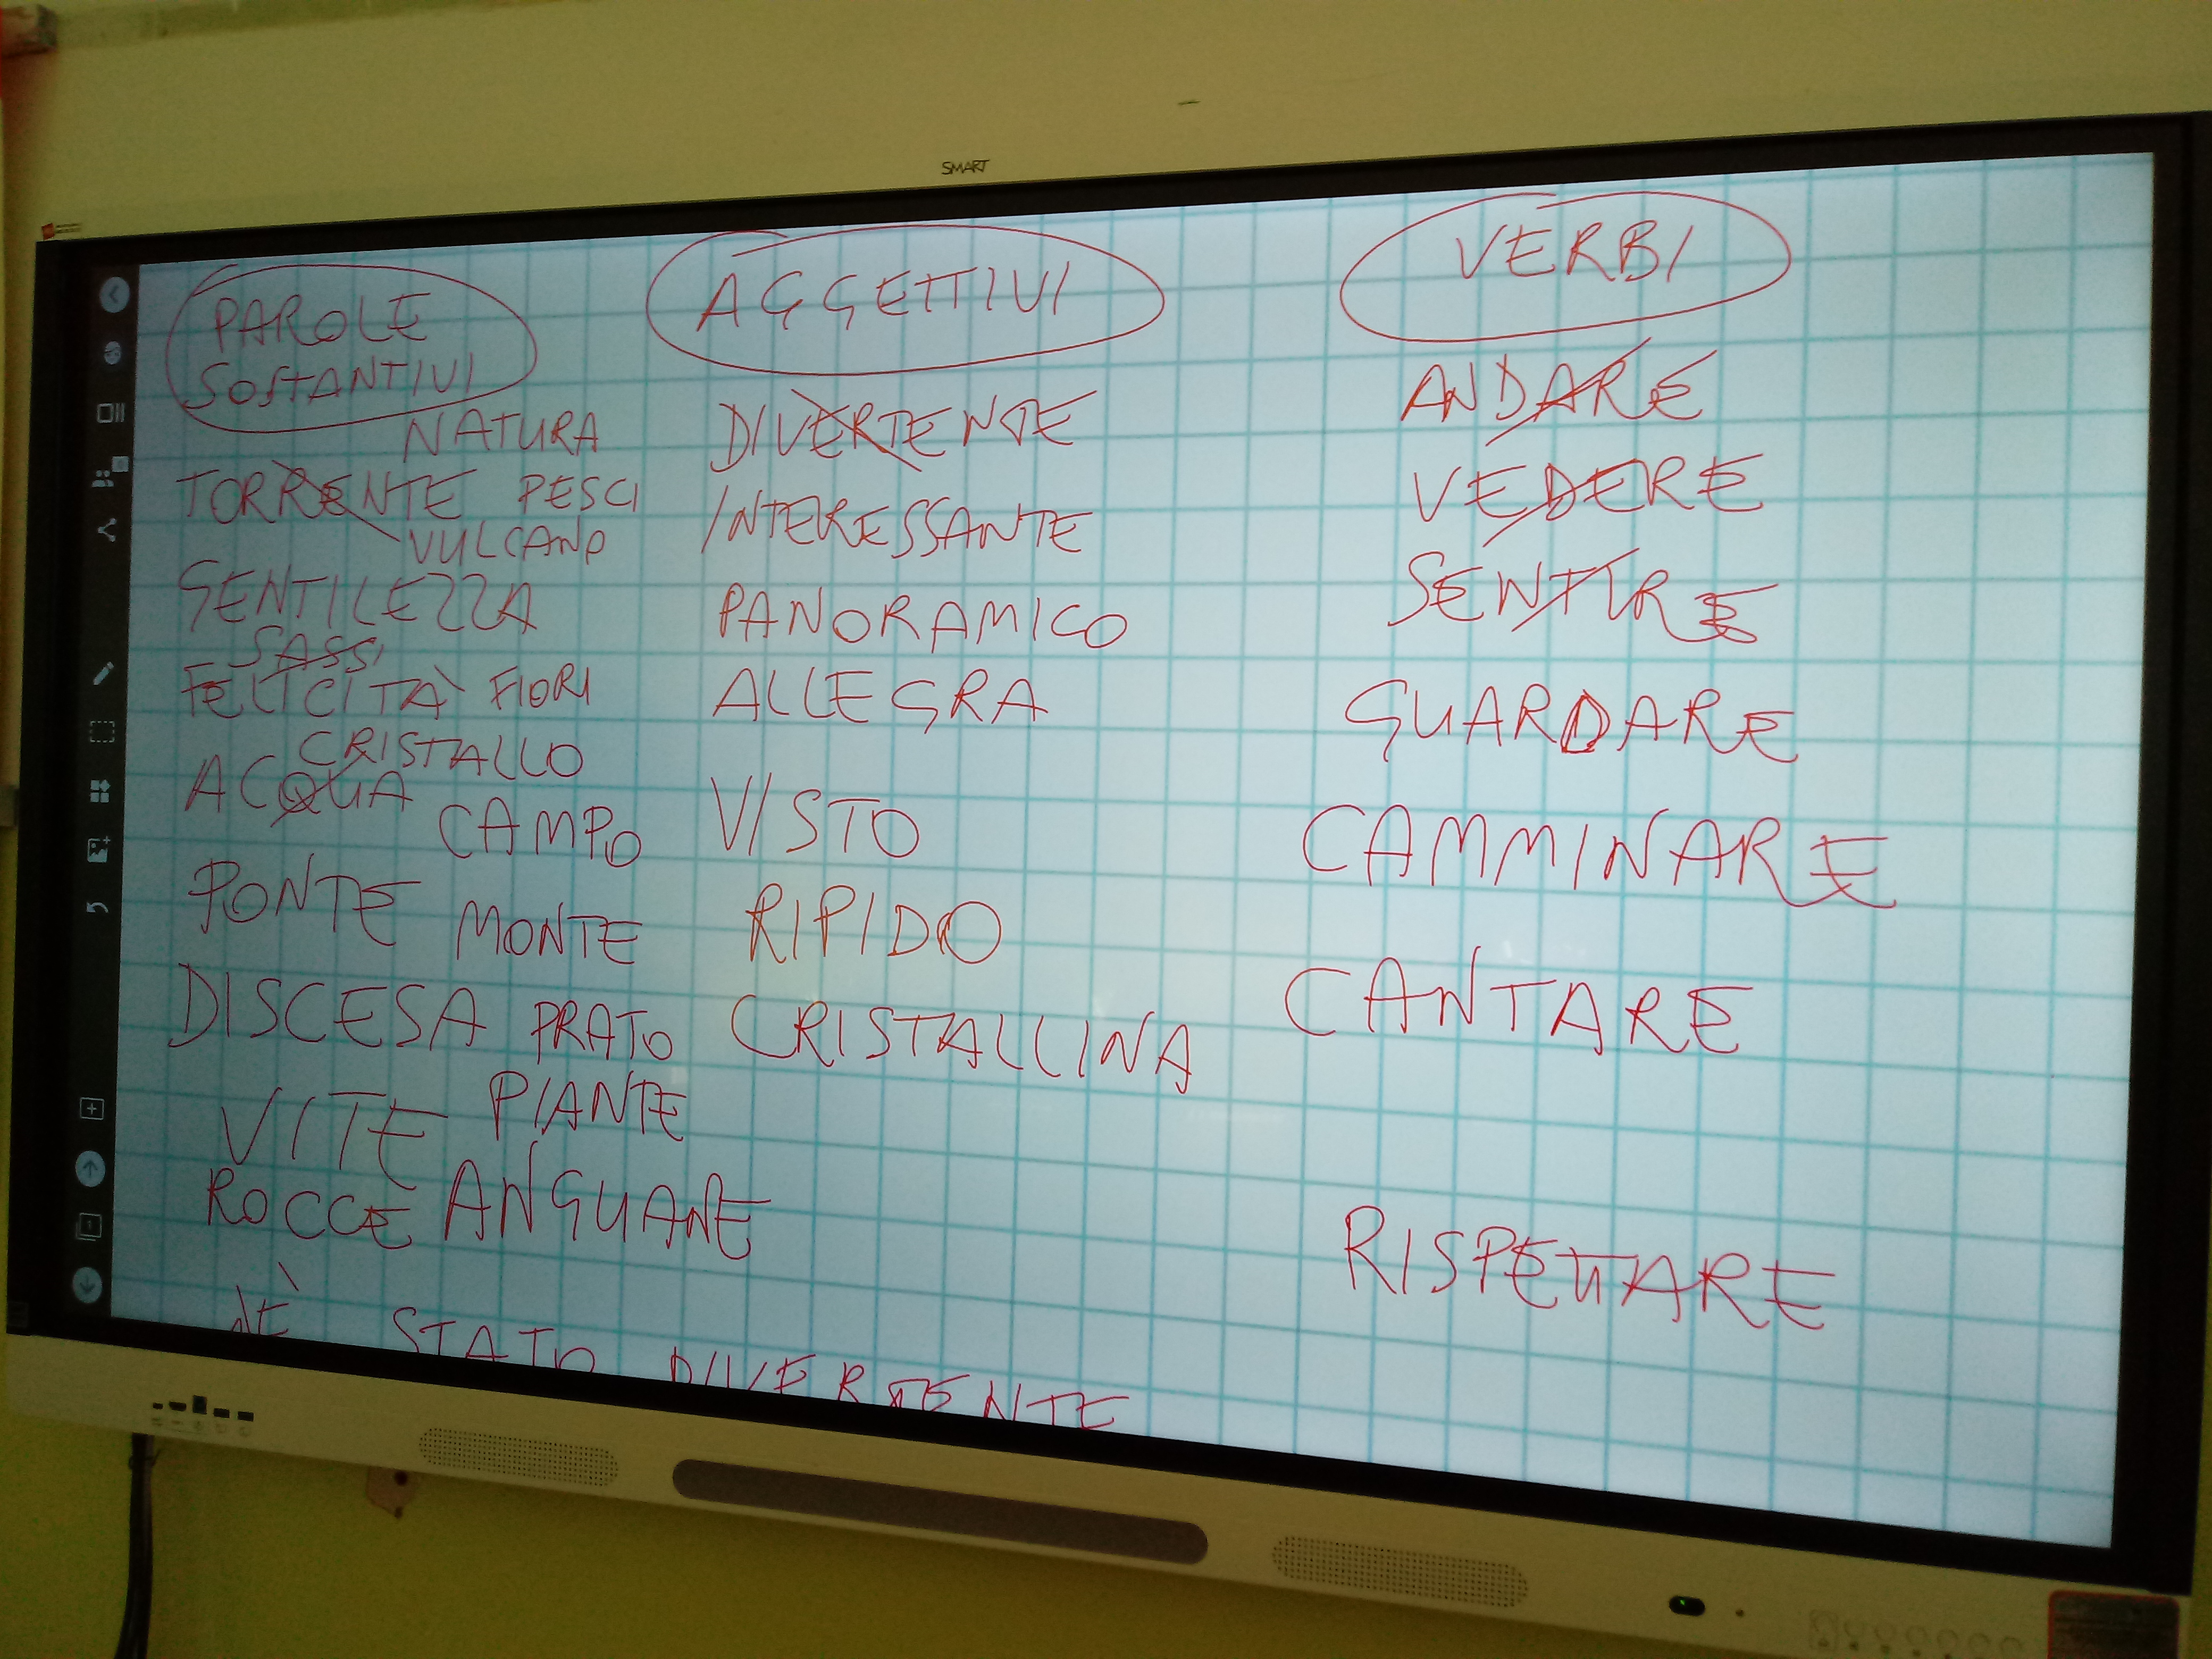 SMART
PAROLE
SOSTANTIVI
NATURA
TORRENTE PESCI
VULCANO
GENTILEZZA
SASSI
FELICITÀ FIORI
CRISTALLO
ACQUA
CAMPO
PONTE MONTE
DISCESA PRATO
PIANTE
VITE
ROCCE ANGUANE
AGGETTIVI
DIVERTENTE
INTERESSANTE
PANORAMICO
ALLEGRA
VISTO
RIPIDO
CRISTALLINA
VERBI
ANDARE
VEDERE
SENTIRE
GUARDARE
CAMMINARE
CANTARE
RISPETTARE
È STATO DIVERTENTE